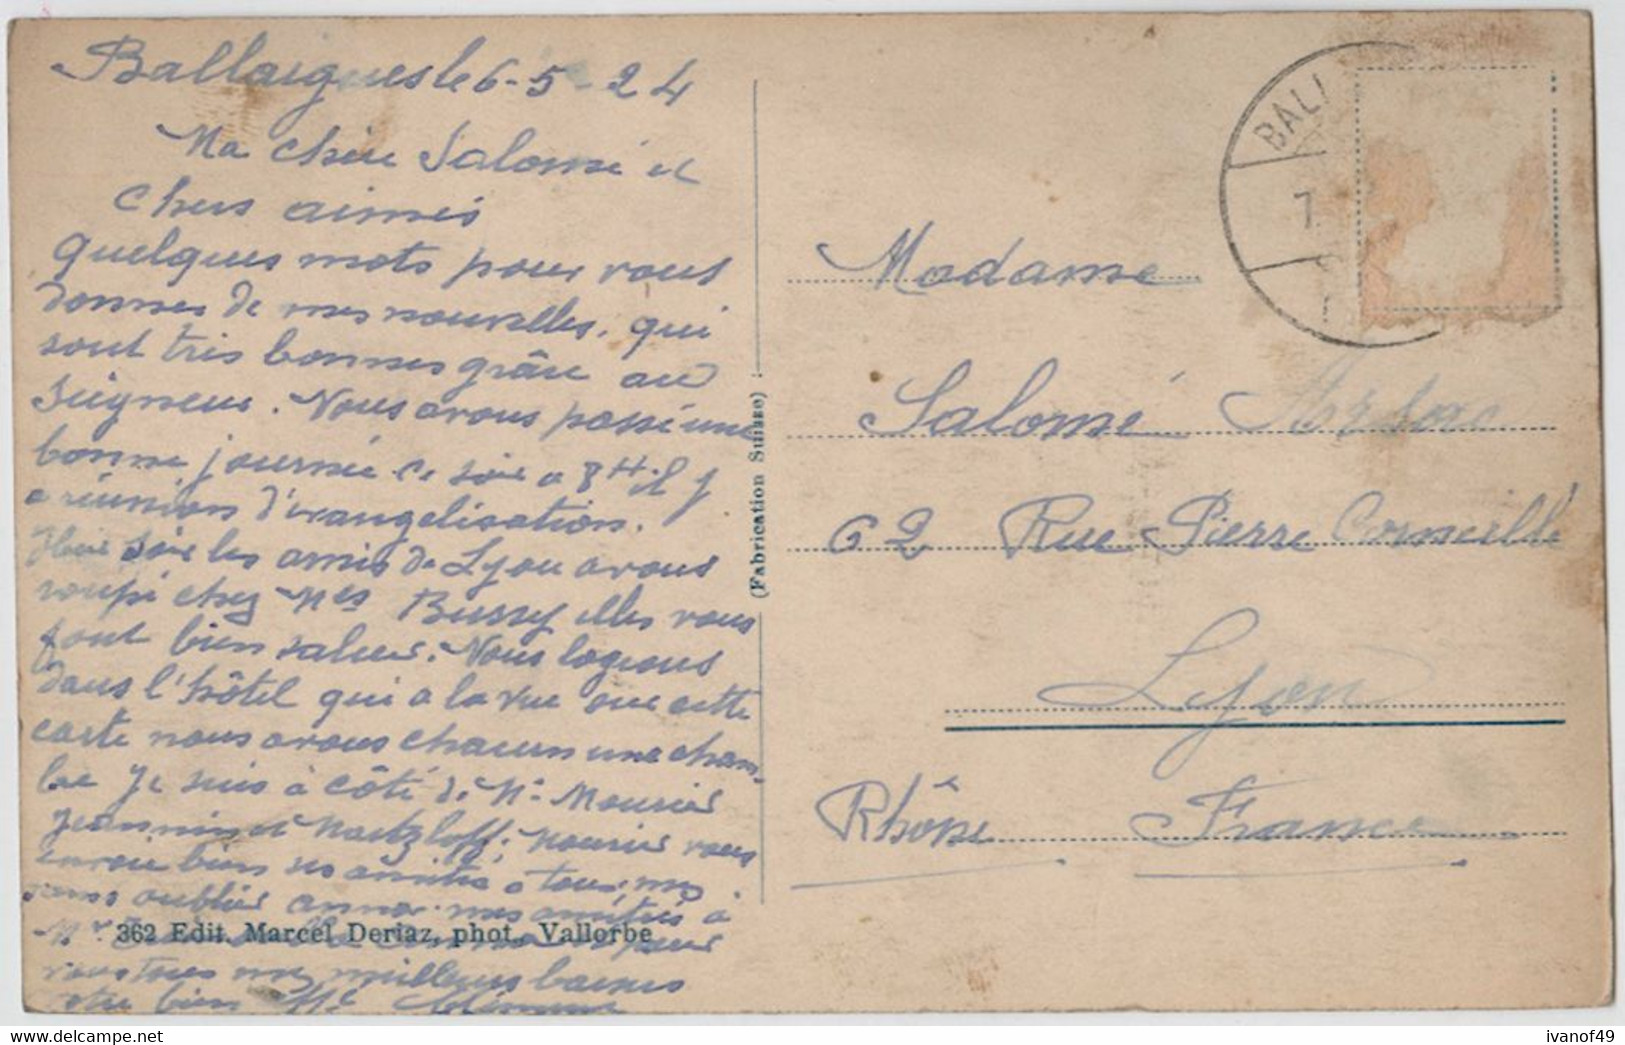 Ballaigues le 6-5-24
Ma chère Salomé et
chers aimés
quelques mots pour vous
donner de mes nouvelles, qui
sont très bonnes grâce au
Seigneur. Nous avons passé une
bonne journée ce soir a 8H il y
a réunion d'évangelisation.
Hier soir les amis de Lyon avons
soupé chez Mes Bussy elles vous
font bien saluer. Nous logeons
dans l'hôtel qui a la vue sur cette
carte nous avons chacun une cham-
bre Je suis à côté de Mr Mourier
Jeannin et Mourier vous
envoie bien ses amitiés a tous,
sans oublier anna. mes amitiés à
Mr
362 Edit. Marcel Deriaz, phot., Vallorbe
vous tous mes meilleurs baisers
votre bien
(Fabrication Suisse)
BALL
7.
Madame
Salomé
62 Rue Pierre Corneille
Lyon
Rhône France
ivanof49